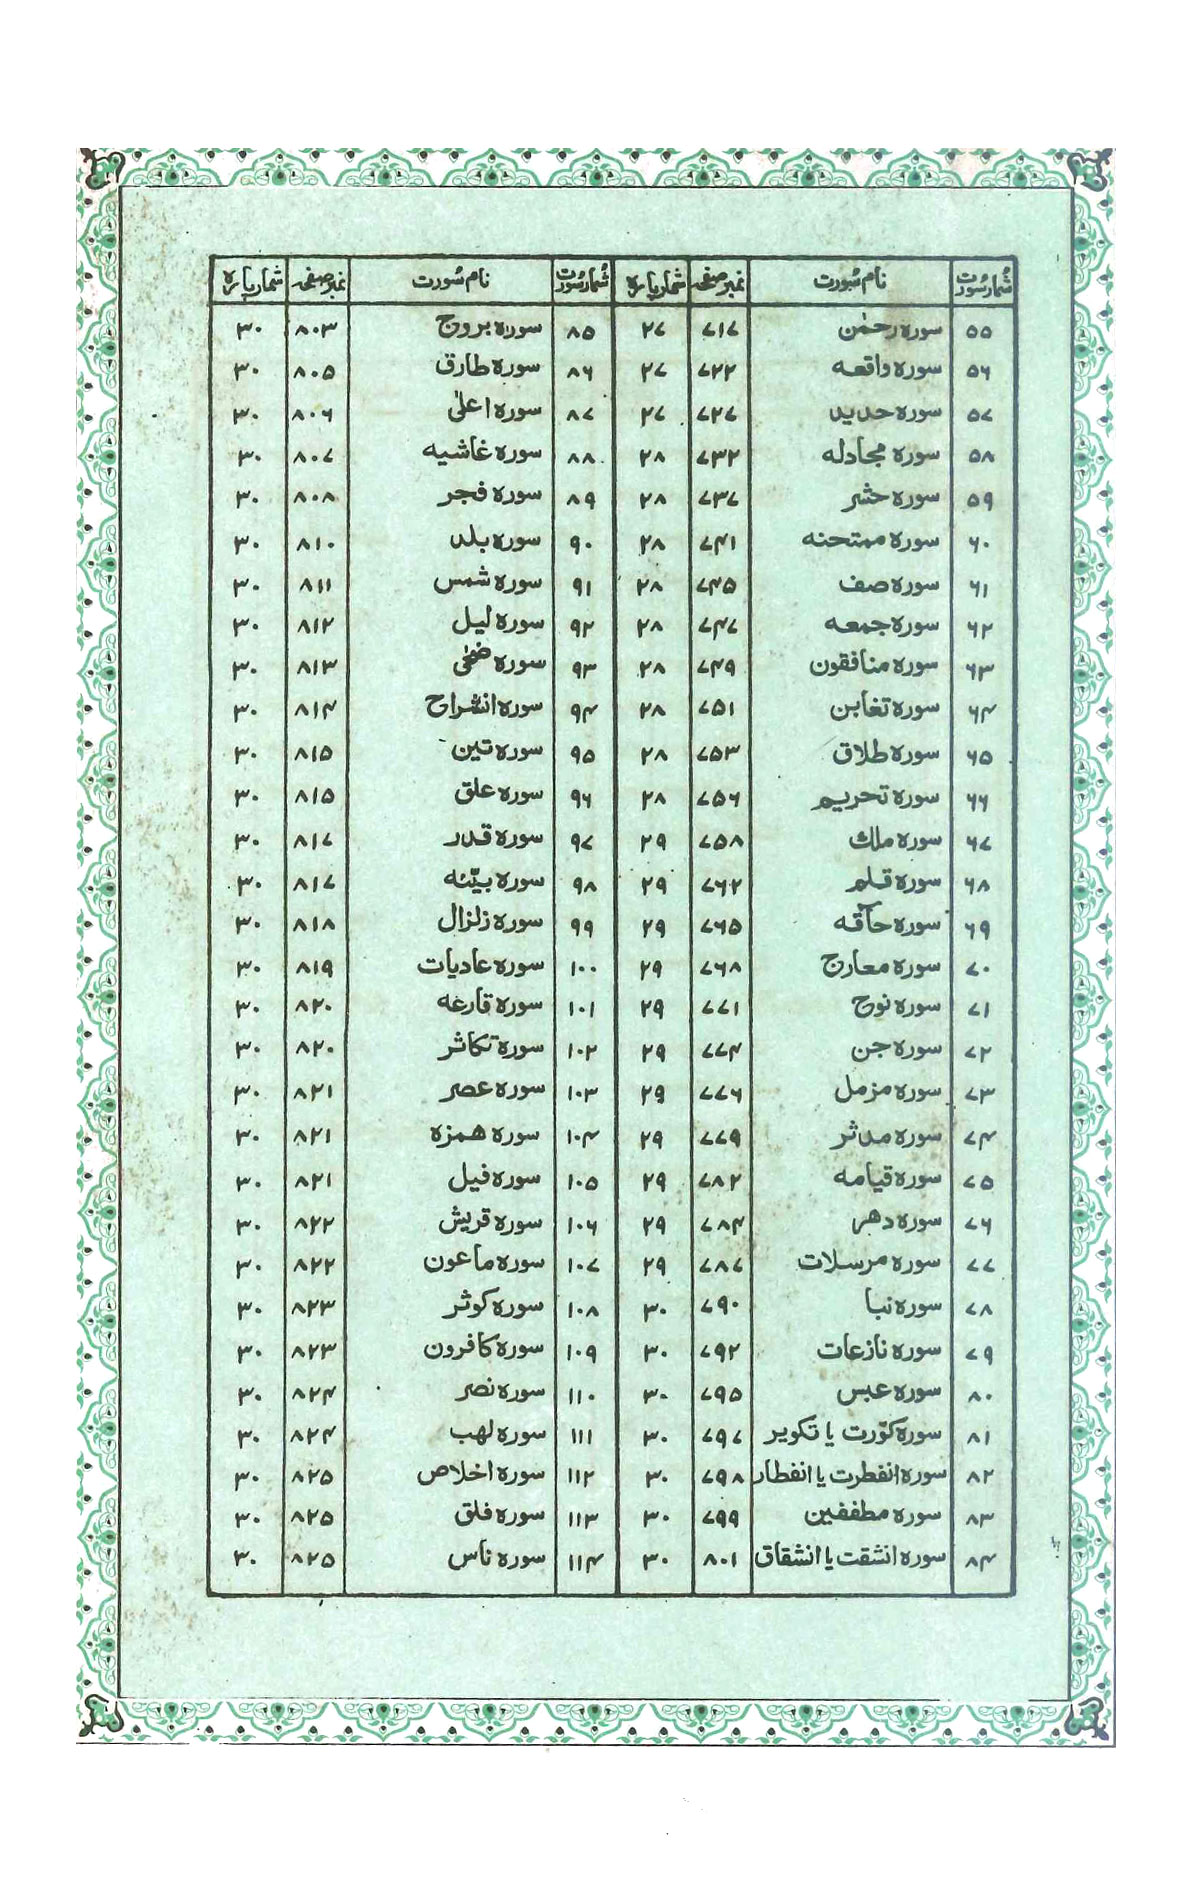 شمار سُورت نام سُورت نمبر صفحہ شمار پارہ شمار سُورت نام سُورت نمبر صفحہ شمار پارہ
۵۵ سورہ رحمٰن ۷۱۷ ۲۷ ۸۵ سورہ بروج ۸۰۳ ۳۰
۵۶ سورہ واقعہ ۷۲۲ ۲۷ ۸۶ سورہ طارق ۸۰۵ ۳۰
۵۷ سورہ حدید ۷۲۷ ۲۷ ۸۷ سورہ اعلیٰ ۸۰۶ ۳۰
۵۸ سورہ مجادلہ ۷۳۲ ۲۸ ۸۸ سورہ غاشیہ ۸۰۷ ۳۰
۵۹ سورہ حشر ۷۳۷ ۲۸ ۸۹ سورہ فجر ۸۰۸ ۳۰
۶۰ سورہ ممتحنہ ۷۴۱ ۲۸ ۹۰ سورہ بلد ۸۱۰ ۳۰
۶۱ سورہ صف ۷۴۵ ۲۸ ۹۱ سورہ شمس ۸۱۱ ۳۰
۶۲ سورہ جمعہ ۷۴۷ ۲۸ ۹۲ سورہ لیل ۸۱۲ ۳۰
۶۳ سورہ منافقون ۷۴۹ ۲۸ ۹۳ سورہ ضحٰی ۸۱۳ ۳۰
۶۴ سورہ تغابن ۷۵۱ ۲۸ ۹۴ سورہ انشراح ۸۱۴ ۳۰
۶۵ سورہ طلاق ۷۵۳ ۲۸ ۹۵ سورہ تین ۸۱۵ ۳۰
۶۶ سورہ تحریم ۷۵۶ ۲۸ ۹۶ سورہ علق ۸۱۵ ۳۰
۶۷ سورہ ملك ۷۵۸ ۲۹ ۹۷ سورہ قدر ۸۱۷ ۳۰
۶۸ سورہ قلم ۷۶۲ ۲۹ ۹۸ سورہ بیّنہ ۸۱۷ ۳۰
۶۹ سورہ حآقہ ۷۶۵ ۲۹ ۹۹ سورہ زلزال ۸۱۸ ۳۰
۷۰ سورہ معارج ۷۶۸ ۲۹ ۱۰۰ سورہ عادیات ۸۱۹ ۳۰
۷۱ سورہ نوح ۷۷۱ ۲۹ ۱۰۱ سورہ قارعہ ۸۲۰ ۳۰
۷۲ سورہ جن ۷۷۴ ۲۹ ۱۰۲ سورہ تکاثر ۸۲۰ ۳۰
۷۳ سورہ مزمل ۷۷۶ ۲۹ ۱۰۳ سورہ عصر ۸۲۱ ۳۰
۷۴ سورہ مدثر ۷۷۹ ۲۹ ۱۰۴ سورہ ھمزہ ۸۲۱ ۳۰
۷۵ سورہ قیامہ ۷۸۲ ۲۹ ۱۰۵ سورہ فیل ۸۲۱ ۳۰
۷۶ سورہ دھر ۷۸۴ ۲۹ ۱۰۶ سورہ قریش ۸۲۲ ۳۰
۷۷ سورہ مرسلات ۷۸۷ ۲۹ ۱۰۷ سورہ ماعون ۸۲۲ ۳۰
۷۸ سورہ نبا ۷۹۰ ۳۰ ۱۰۸ سورہ کوثر ۸۲۳ ۳۰
۷۹ سورہ نازعات ۷۹۲ ۳۰ ۱۰۹ سورہ کافرون ۸۲۳ ۳۰
۸۰ سورہ عبس ۷۹۵ ۳۰ ۱۱۰ سورہ نصر ۸۲۴ ۳۰
۸۱ سورہ کوّرت یا تکویر ۷۹۷ ۳۰ ۱۱۱ سورہ لھب ۸۲۴ ۳۰
۸۲ سورہ انفطرت یا انفطار ۷۹۸ ۳۰ ۱۱۲ سورہ اخلاص ۸۲۵ ۳۰
۸۳ سورہ مطففین ۷۹۹ ۳۰ ۱۱۳ سورہ فلق ۸۲۵ ۳۰
۸۴ سورہ انشقت یا انشقاق ۸۰۱ ۳۰ ۱۱۴ سورہ ناس ۸۲۵ ۳۰